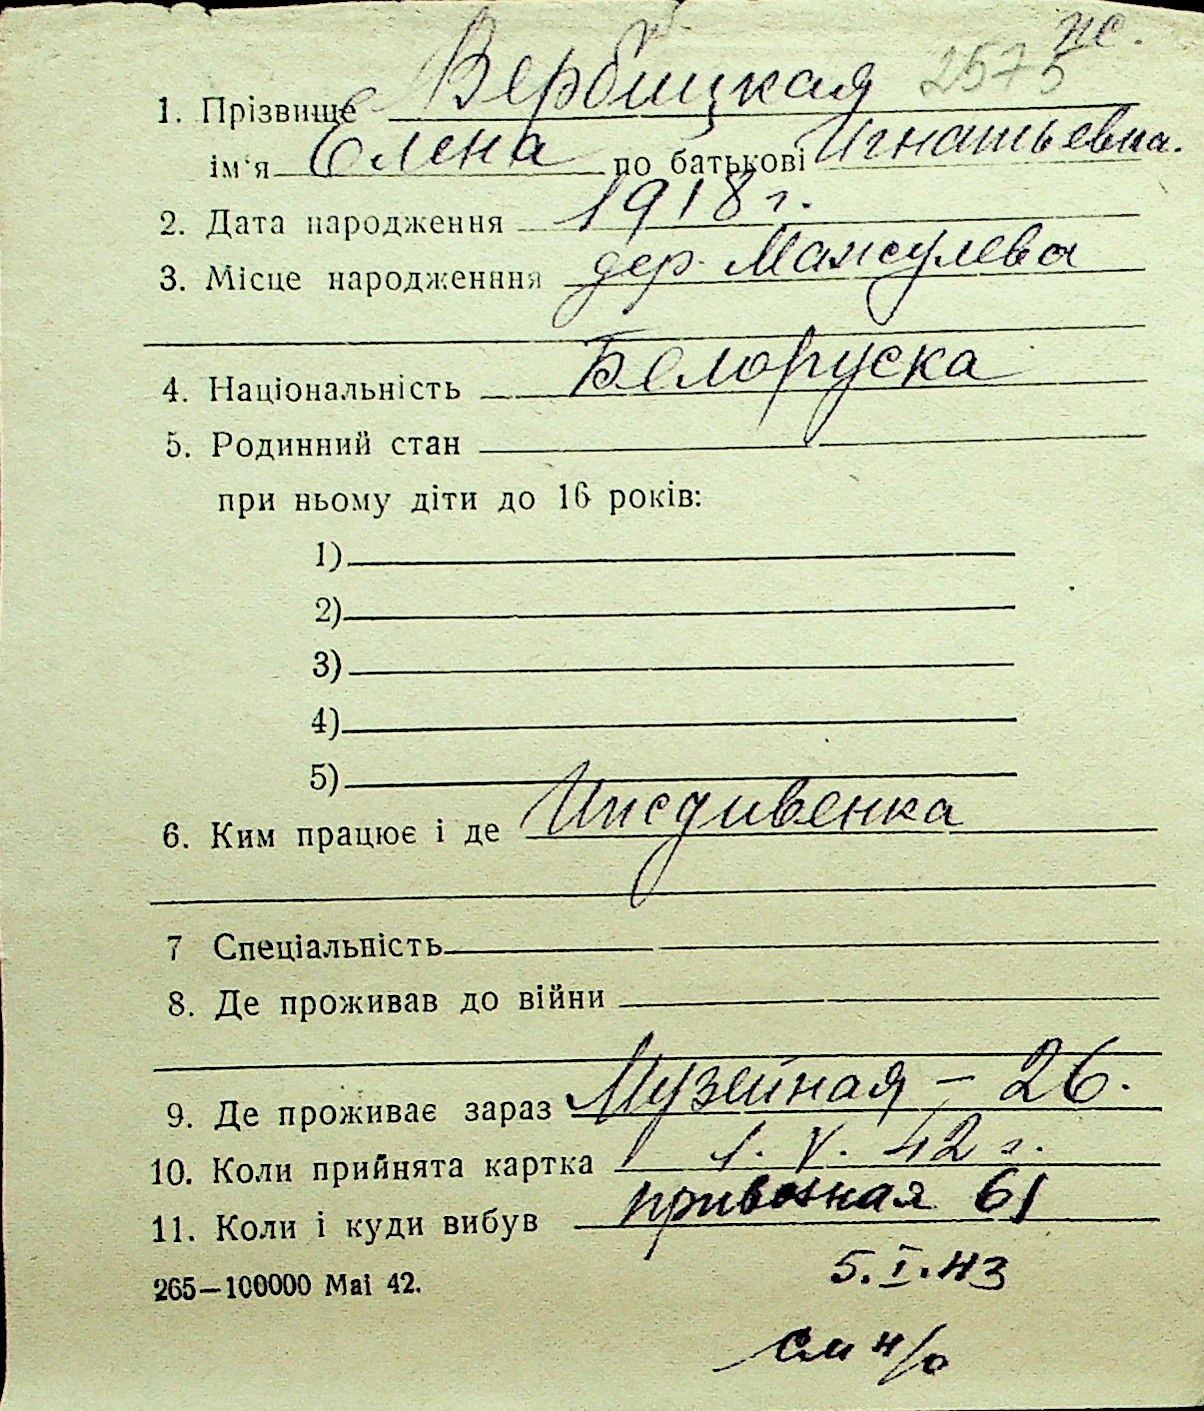 пс.
2575
1. Прізвище Вербицкая
ім'я Елена по батькові Игнатьевна.
2. Дата народження 1918 г.
3. Місце народженння дер. Мажулева
4. Національність Белоруска
5. Родинний стан
при ньому діти до 16 років:
1)
2)
3)
4)
5)
6. Ким працює і де Иждивенка
7 Спеціальність
8. Де проживав до війни
9. Де проживає зараз Музейная – 26.
10. Коли прийнята картка 1. V. 42 г.
11. Коли і куди вибув привозная 61
265—100000 Mai 42.
5. I. 43
см н/о